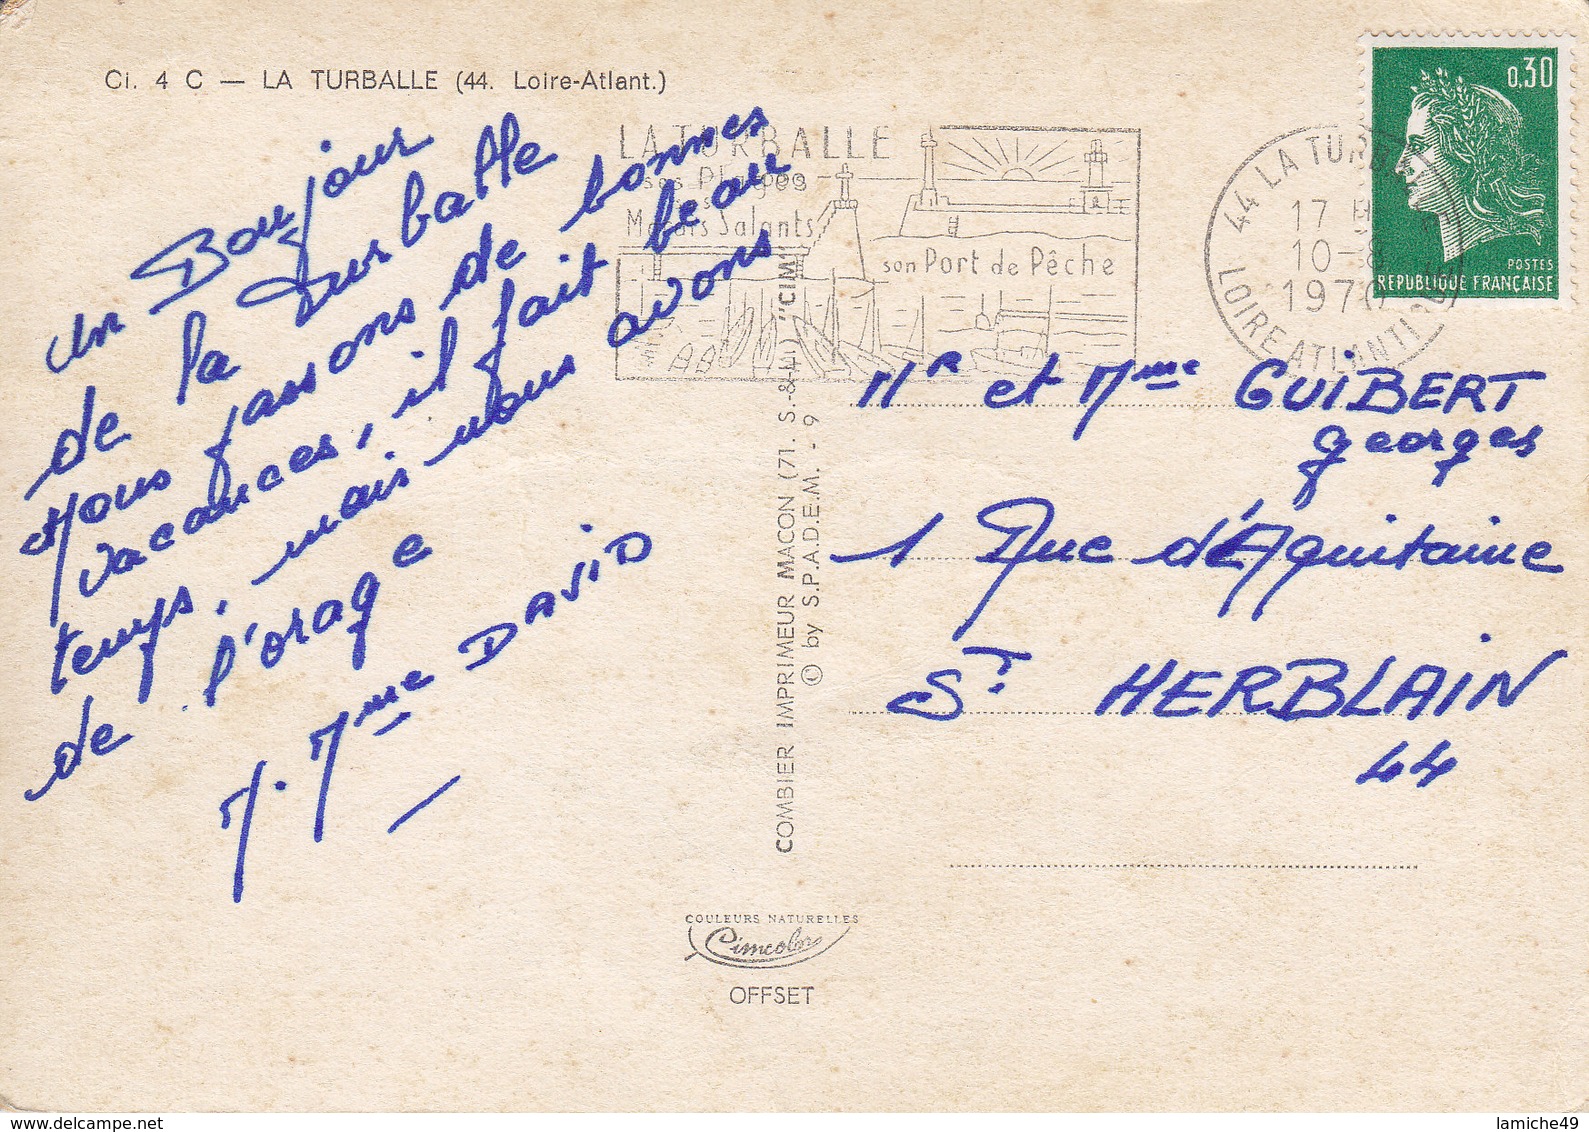 Ci. 4 C — LA TURBALLE (44. Loire-Atlant.)
un Bonjour
de la Turballe
Nous passons de bonnes
vacances, il fait beau
temps, mais nous avons
de l'orage
M. Mme DAVID
LA TURBALLE
ses Plages
ses
Marais Salants
son Port de Pêche
44 LA TURBALLE
17 H
10-8
1970
LOIRE ATLANTIQUE
0,30
POSTES
REPUBLIQUE FRANÇAISE
Mr et Mme GUIBERT
georges
1 Rue d'Aquitaine
ST HERBLAIN
44
COMBIER IMPRIMEUR MACON (71. S.-&-L.) "CIM"
© by S.P.A.D.E.M. - 9
COULEURS NATURELLES
Cimcolor
OFFSET
lamiche49